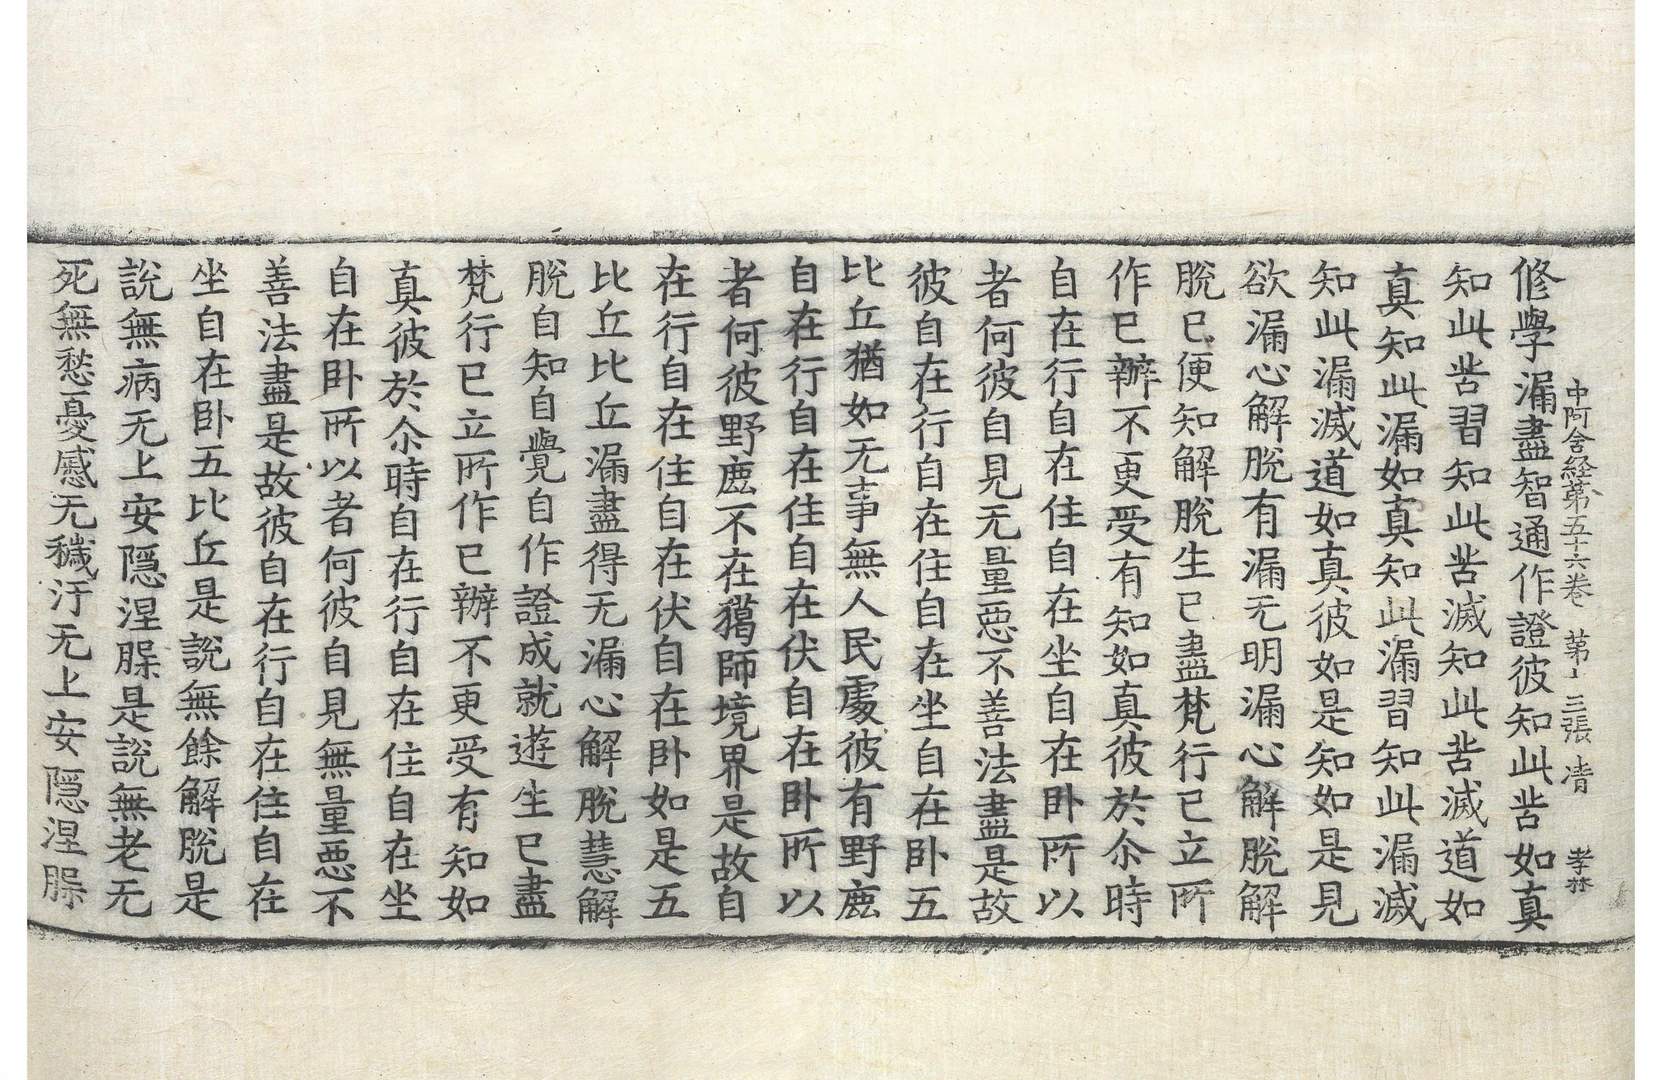 中阿含経第五十六卷 第十三張 凊 孝林
修學漏盡智通作證彼知此苦如真
知此苦習知此苦滅知此苦滅道如
真知此漏如真知此漏習知此漏滅
知此漏滅道如真彼如是知如是見
欲漏心解脫有漏无明漏心解脫解
脫已便知解脫生已盡梵行已立所
作已辦不更受有知如真彼於尒時
自在行自在住自在坐自在卧所以
者何彼自見无量惡不善法盡是故
彼自在行自在住自在坐自在卧五
比丘猶如无事無人民處彼有野鹿
自在行自在住自在伏自在卧所以
者何彼野鹿不在獦師境界是故自
在行自在住自在伏自在卧如是五
比丘比丘漏盡得无漏心解脫慧解
脫自知自覺自作證成就遊生已盡
梵行已立所作已辦不更受有知如
真彼於尒時自在行自在住自在坐
自在卧所以者何彼自見無量惡不
善法盡是故彼自在行自在住自在
坐自在卧五比丘是說無餘解脫是
說無病无上安隠涅槃是說無老无
死無愁憂慼无穢汙无上安隠涅槃